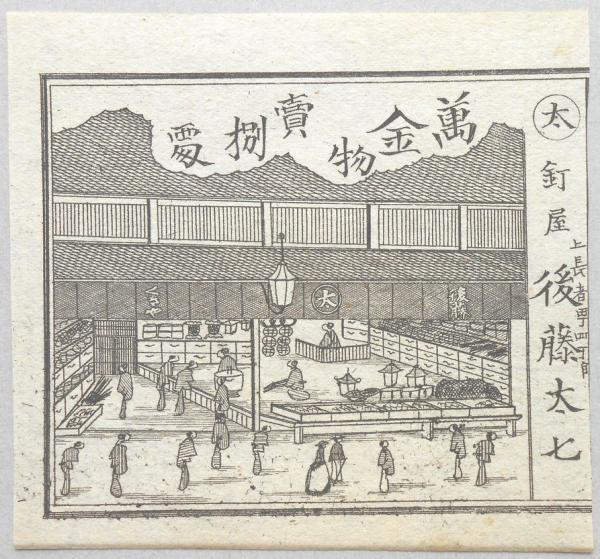 萬金物賣捌處
太
釘屋
上長者町
後藤太七
後藤
太
くぎや